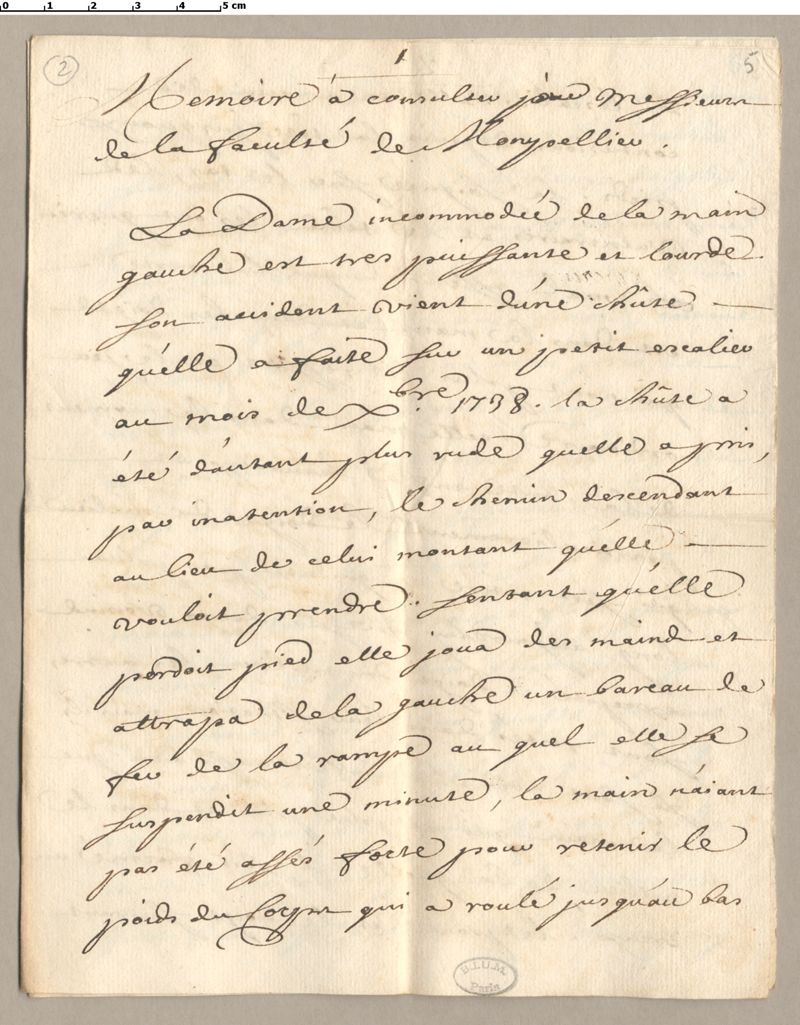 0 1 2 3 4 5 cm
2
1
5
Memoire à consulter pour Messieurs
de la faculté de Monpellier.
La Dame incommodée de la main
gauche est tres puissante et lourde.
son accident vient d'une chûte
qu'elle a faite sur un petit escalier
au mois de Xbre. 1738. la chûte a
été d'autant plus rude quelle a pris,
par inatention, le chemin descendant
au lieu de celui montant qu'elle
vouloit prendre. sentant qu'elle
perdoit pied elle joua des mains et
attrapa de la gauche un bareau de
fer de la rampe au quel elle se
suspendit une minute, la main n'aiant
pas été assés forte pour retenir le
poids du Corps qui a roulé jusqu'au bas
B.I.U.M.
Paris